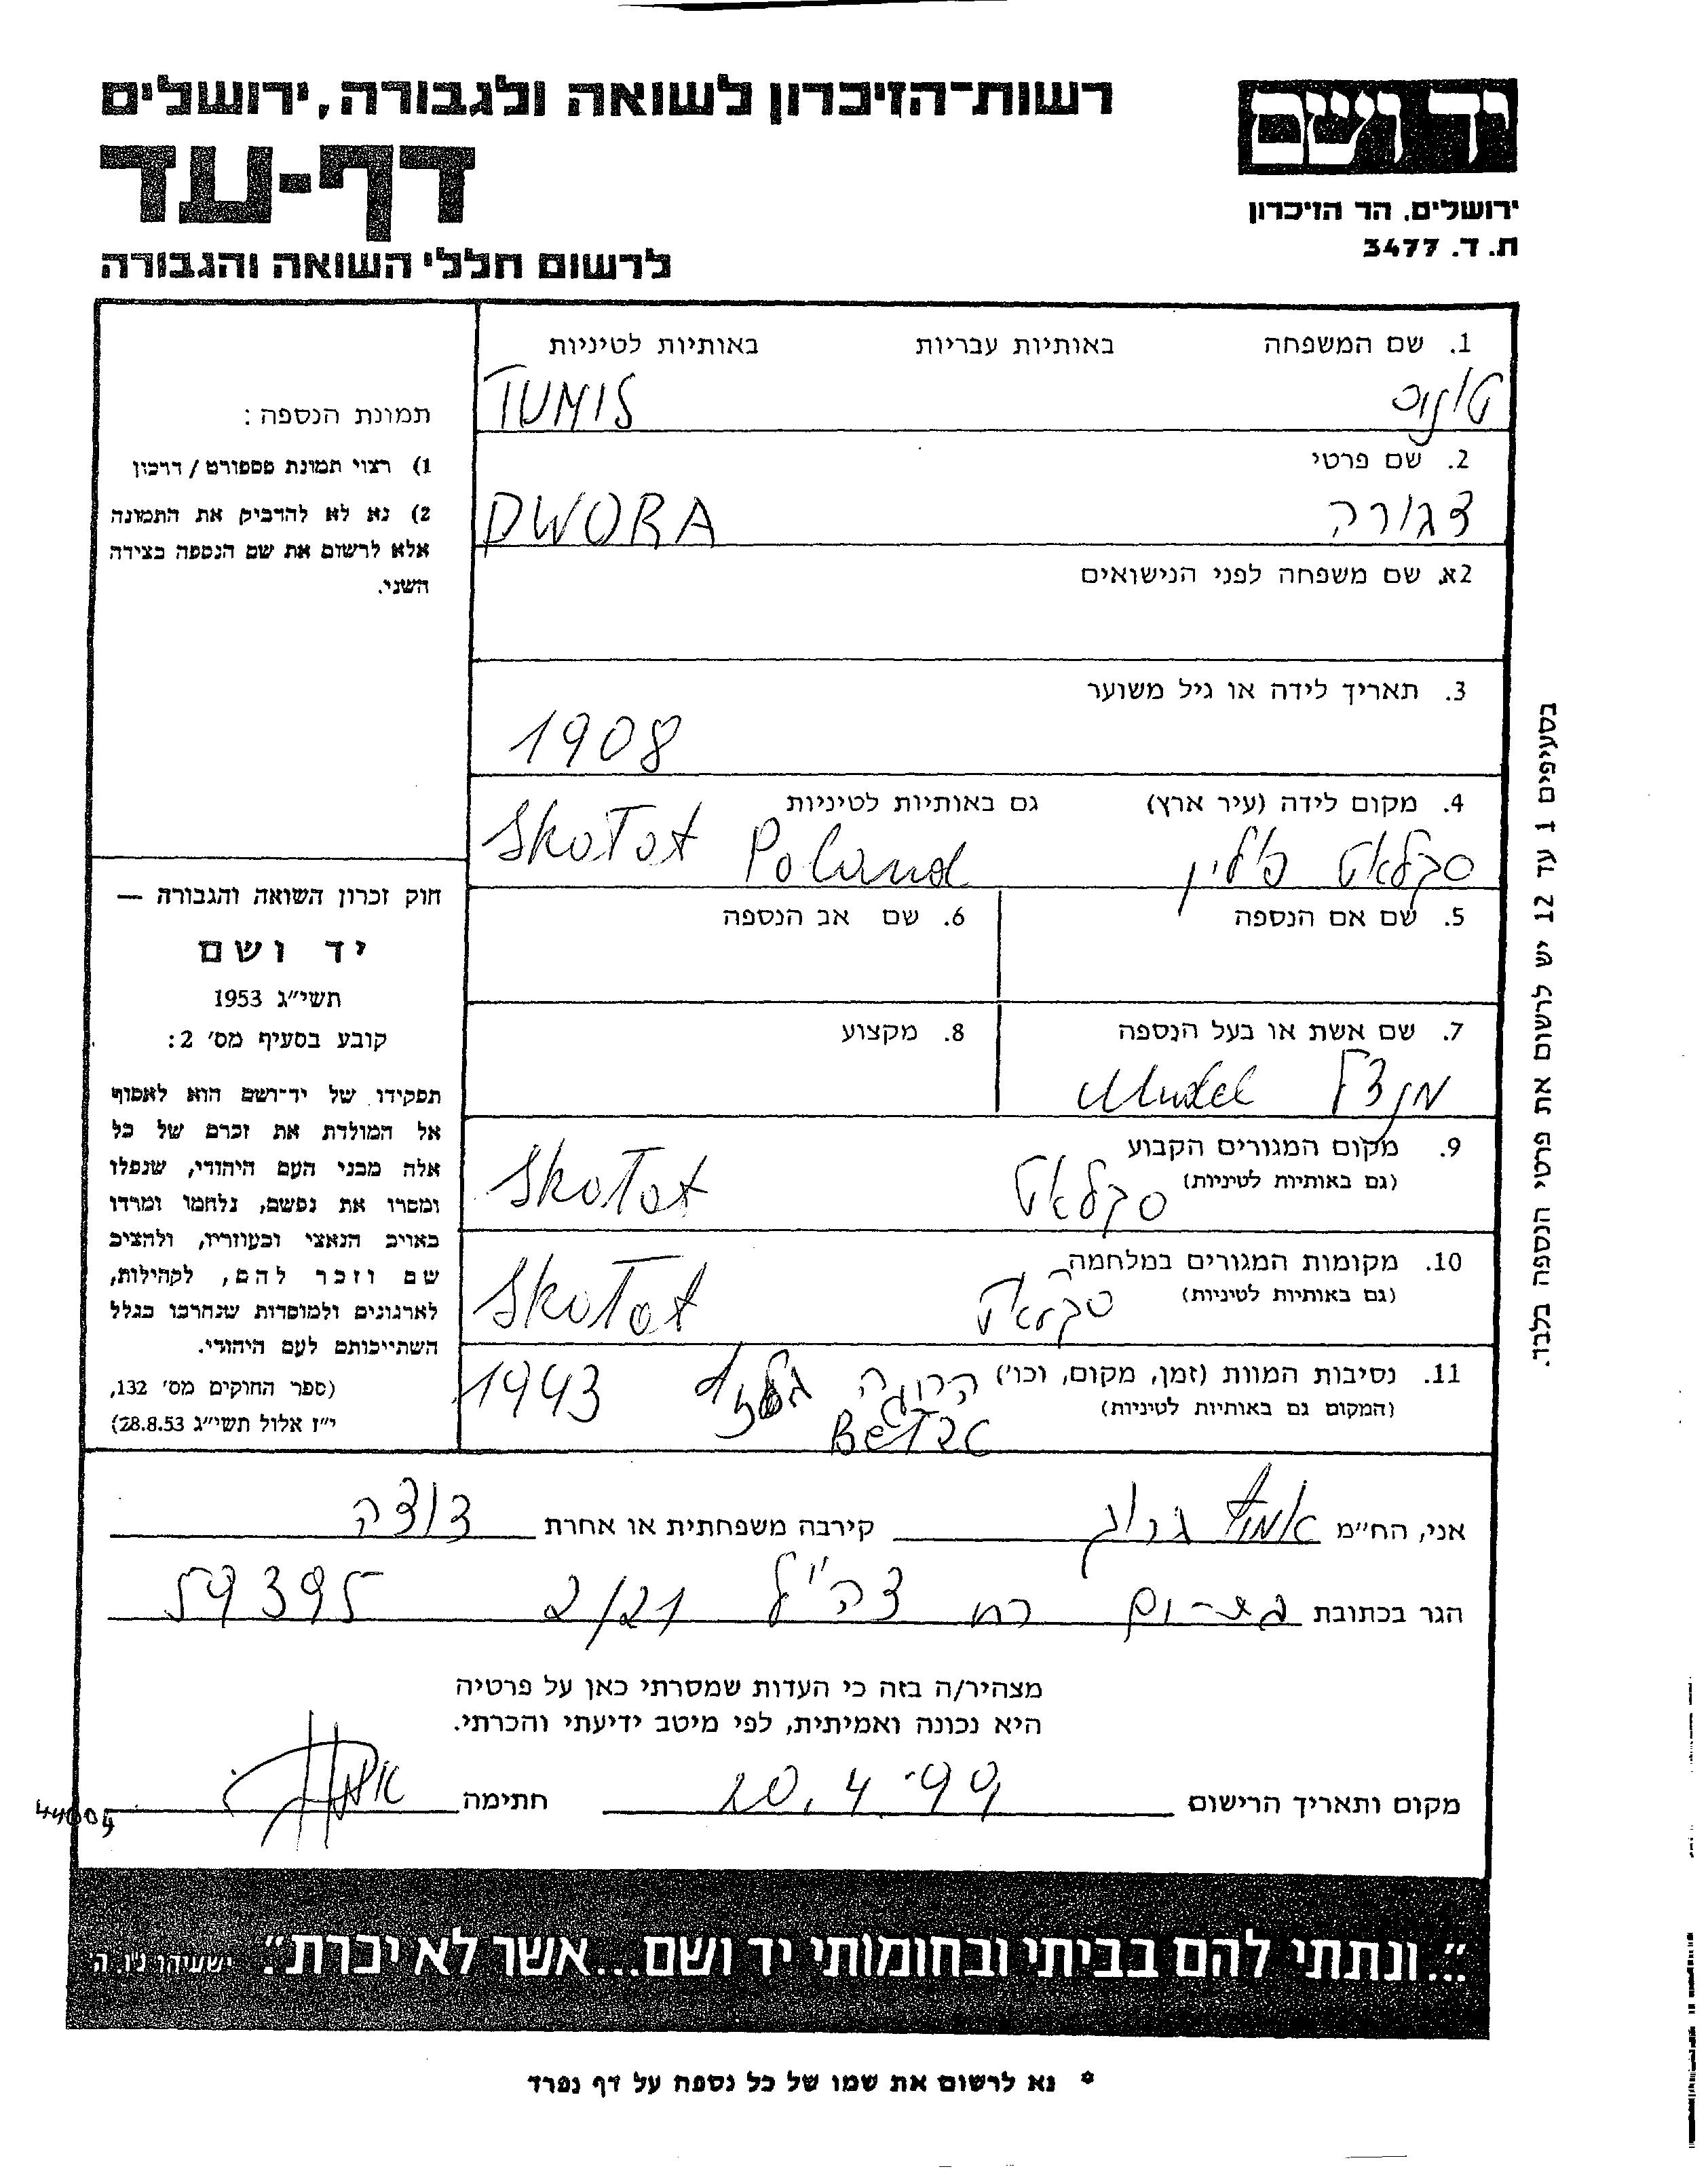 יד ושם
ירושלים. הר הזיכרון
ת. ד. 3477
רשות־הזיכרון לשואה ולגבורה, ירושלים
דף-עד
לרשום חללי השואה והגבורה
1. שם המשפחה באותיות עבריות באותיות לטיניות
TUNIS
2. שם פרטי
דבורה DWORA
2א. שם משפחה לפני הנישואים
3. תאריך לידה או גיל משוער
1908
4. מקום לידה (עיר ארץ) גם באותיות לטיניות
סקלאט פולין Skałat Poland
5. שם אם הנספה
6. שם אב הנספה
7. שם אשת או בעל הנספה
מנדל
8. מקצוע
9. מקום המגורים הקבוע
(גם באותיות לטיניות)
סקלאט Skałat
10. מקומות המגורים במלחמה
(גם באותיות לטיניות)
סקלאט Skałat
11. נסיבות המוות (זמן, מקום, וכו')
(המקום גם באותיות לטיניות)
1943
Bełzec
תמונת הנספה:
1) רצוי תמונת פספורט / דרכון
2) נא לא להדביק את התמונה
אלא לרשום את שם הנספה בצידה
השני.
חוק זכרון השואה והגבורה —
יד ושם
תשי"ג 1953
קובע בסעיף מס' 2:
תפקידו של יד־ושם הוא לאסוף
אל המולדת את זכרם של כל
אלה מבני העם היהודי, שנפלו
ומסרו את נפשם, נלחמו ומרדו
באויב הנאצי ובעוזריו, ולהציב
שם וזכר להם, לקהילות,
לארגונים ולמוסדות שנחרבו בגלל
השתייכותם לעם היהודי.
(ספר החוקים מס' 132,
י"ז אלול תשי"ג 28.8.53)
בסעיפים 1 עד 12 יש לרשום את פרטי הנספה בלבד.
אני, הח"מ קירבה משפחתית או אחרת דודה
הגר בכתובת בת-ים רח צה"ל 2/21 59395
מצהיר/ה בזה כי העדות שמסרתי כאן על פרטיה
היא נכונה ואמיתית, לפי מיטב ידיעתי והכרתי.
מקום ותאריך הרישום 20.4.99 חתימה
"...ונתתי להם בביתי ובחומותי יד ושם...אשר לא יכרת". ישעיהו נ"ו. ה
* נא לרשום את שמו של כל נספה על דף נפרד